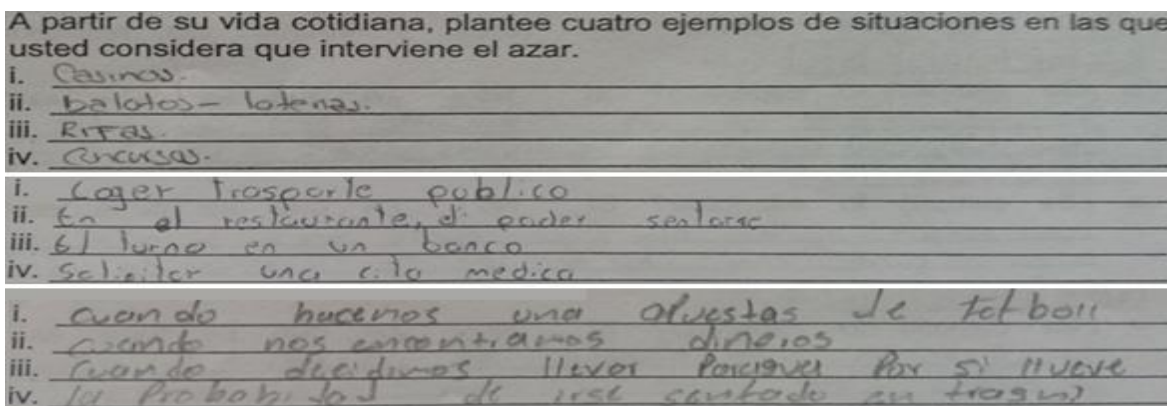 A partir de su vida cotidiana, plantee cuatro ejemplos de situaciones en las que
usted considera que interviene el azar.
i. Casinos.
ii. balotos - loterias.
iii. RIFAS.
iv. Concursos.
i. Coger trasporte publico
ii. En el restaurante, el poder sentarse
iii. El turno en un banco
iv. Solicitar una cita medica
i. cuando hacemos una apuestas de fot boll
ii. cuando nos encontramos dineros
iii. cuando decidimos llevar Paraguas Por si llueve
iv. la Probabilidad de irse sentado en